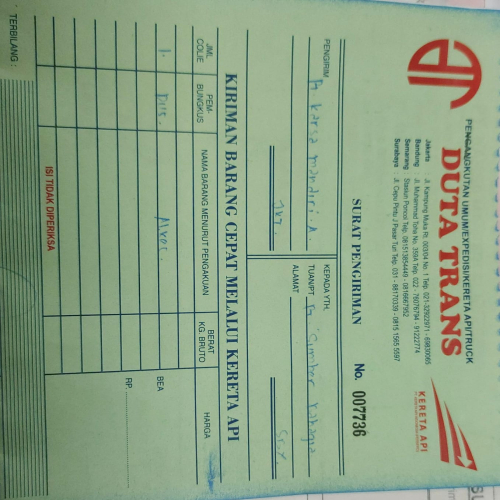 PENGANGKUTAN UMUM/EXPEDISI/KERETA API/TRUCK
DUTA TRANS
KERETA API
Jakarta : Jl. Kampung Muka Rt. 003/04 No. 1 Telp. 021-32922971 - 69830065
Bandung : Jl. Muhammad Toha No. 359A Telp. 022 - 76076794 - 91222774
Semarang : Stasiun Poncol Telp. 081513854449 - 0816667952
Surabaya : Jl. Cepu Pintu J Pasar Turi Telp. 031 - 88170339 - 0815 1565 5597
SURAT PENGIRIMAN
No. 007736
PENGIRIM Pt Karsa mandiri. A.
JKT.
KEPADA YTH.
TUAN/PT Pt Sumber Rahayu
ALAMAT
SBY.
KIRIMAN BARANG CEPAT MELALUI KERETA API
JML COLIE
PEM-BUNGKUS
NAMA BARANG MENURUT PENGAKUAN
BERAT KG. BRUTO
HARGA
1. Dus.
BEA
RP.
ISI TIDAK DIPERIKSA
TERBILANG :